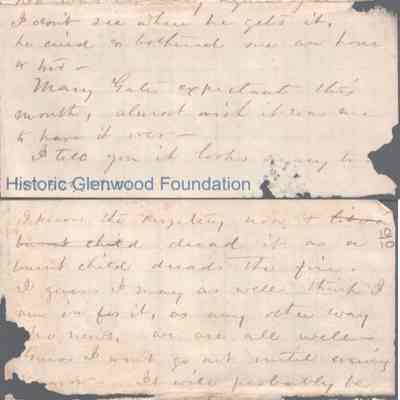 I don't see where he gets it,
he cried & bothered me an hour
or two —
Mary Gates expectant this
month, almost wish it was me
to have it over —
I tell you it looks
Historic Glenwood Foundation
I know the now &
burnt child dread it as a
burnt child dreads the fire.
I guess I may as well think I
am in for it, as any other way
no news, we are all well
I won't go out until evening
It will probably be